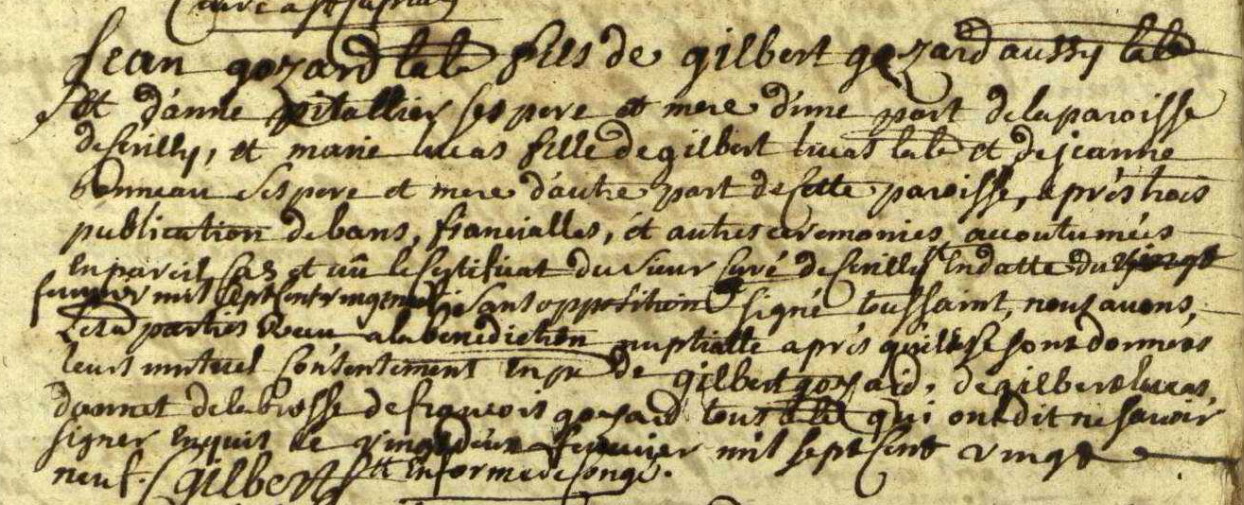 Jean gozard lab fils de gilbert gozard aussy lab
et d'anne pitallier ses pere et mere d'une part de la paroisse
de serilly, et marie lucas fille de gilbert lucas lab et de jeanne
bonneau ses pere et mere d'autre part de cette paroisse, après trois
publication de bans, fiancialles, et autres ceremonies accoutumées
en pareil cas et vû le certificat du sieur curé de serilly en datte du vingt
feuvrier mil sept cent vingt neuf sans opposition signé toussaint, nous avons,
parties Receu a la benediction nuptialle après qu'ils se sont donnés
leurs mutuel consentement en pr de gilbert gozard, de gilbert lucas,
d'annet de la brosse de francois gozard tous lab qui ont dit ne savoir
signer enquis le vingt deux feuvrier mil sept cent vingt
neuf. Gilbert et en forme de congé.